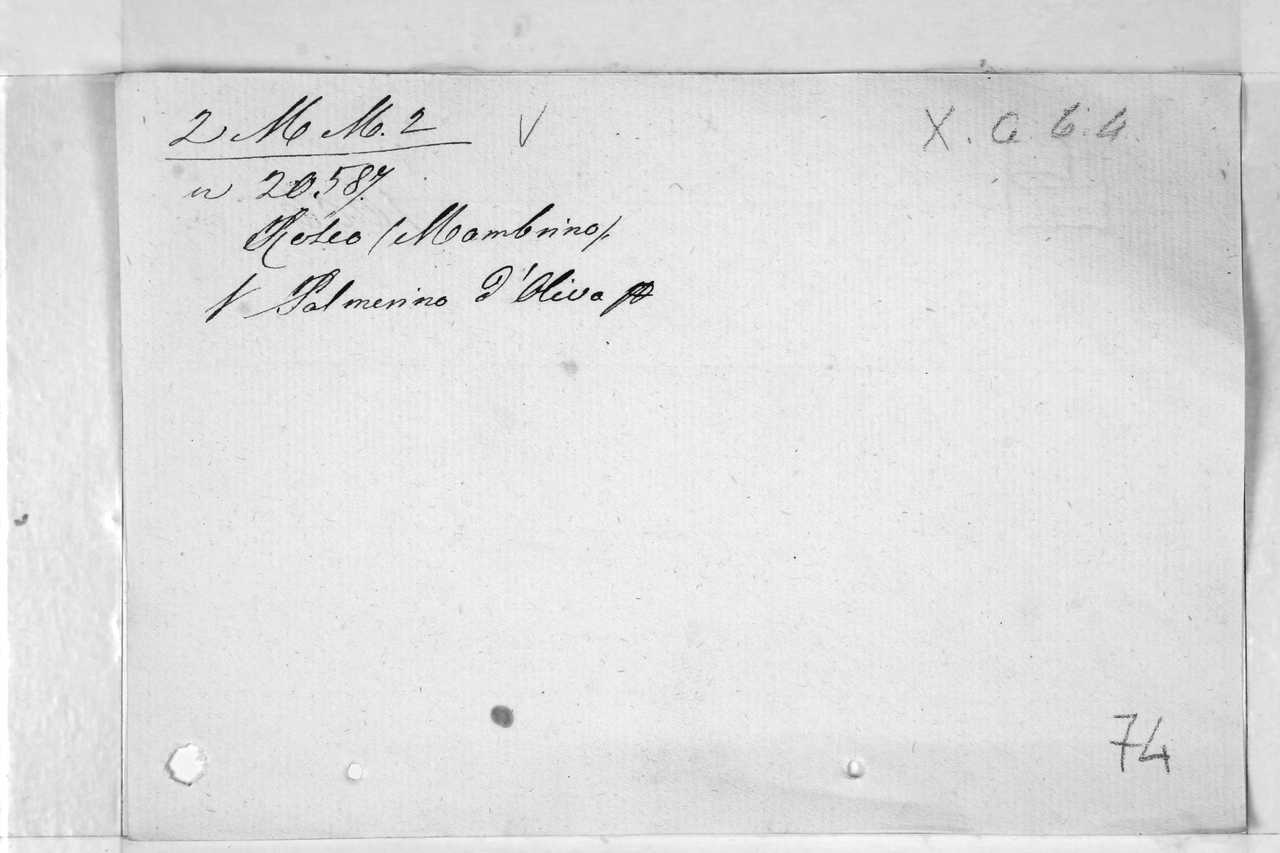 2 M M. 2 V X. a. b. 4.
n 20.587.
Roseo (Mambrino).
Palmerino d'Oliva
74